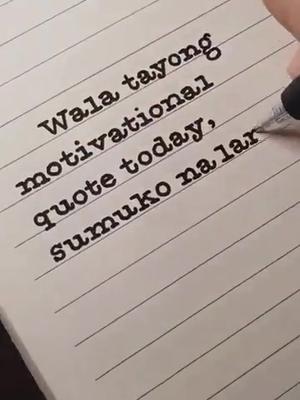 Wala tayong
motivational
quote today,
sumuko na lar